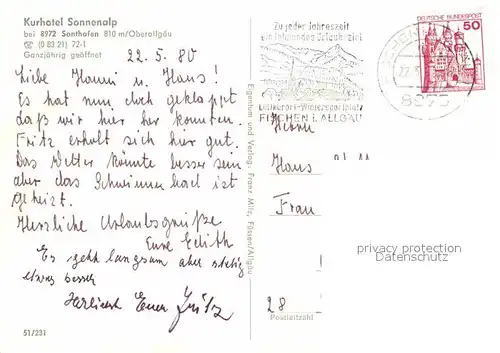 Kurhotel Sonnenalp
bei 8972 Sonthofen 810 m/Oberallgäu
☏ (0 83 21) 72-1
Ganzjährig geöffnet
22.5.80
Liebe Hanni u. Hans!
Es hat nun doch geklappt
daß wir hier her konnten
Fritz erholt sich hier gut.
Das Wetter könnte besser sein
aber das Schwimmbad ist
geheizt.
Herzliche Urlaubsgrüße
Eure Edith
Es geht langsam aber stetig
etwas besser
Herzlichst Euer Fritz
51/231
Eigentum und Verlag: Franz Milz, Füssen/Allgäu
Zu jeder Jahreszeit
ein lohnendes Urlaubsziel
Luftkurort-Wintersportplatz
FISCHEN i. ALLGÄU
DEUTSCHE BUNDESPOST
50
8975
Herrn
Hans
Frau
28
Postleitzahl
privacy protection
Datenschutz